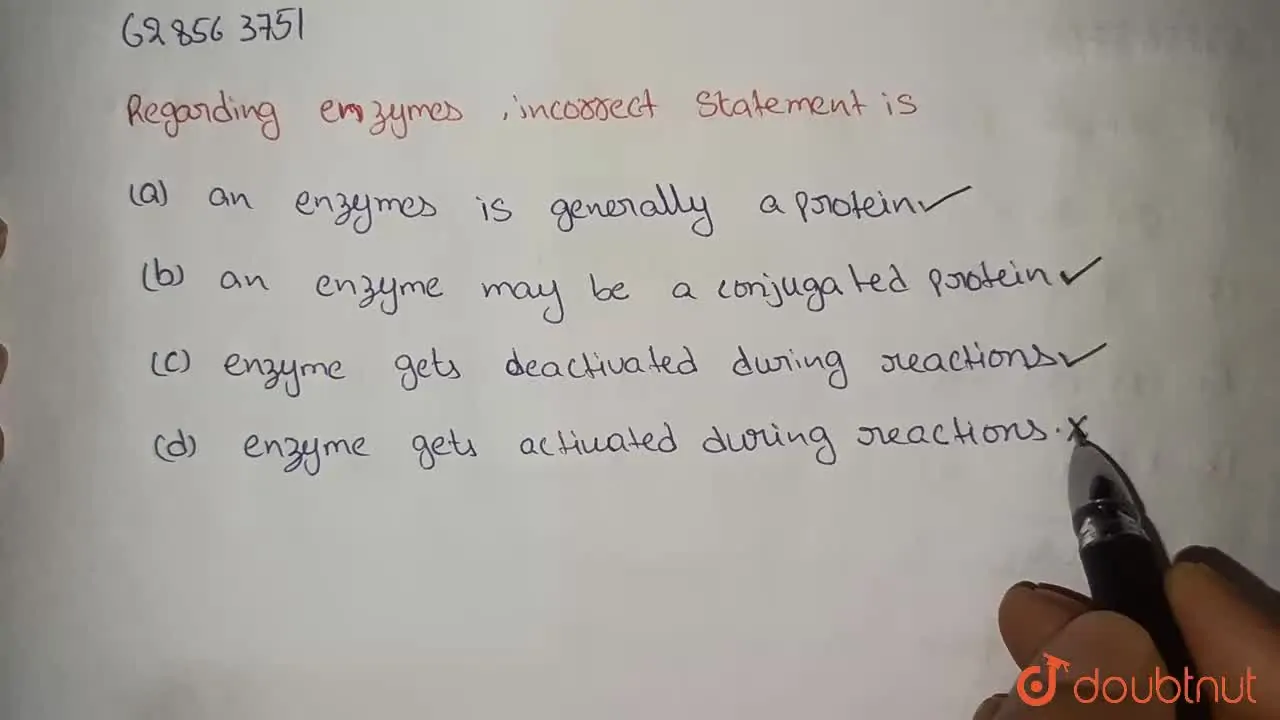 62 856 3751
Regarding enzymes , incorrect Statement is
(a) an enzymes is generally a protein ✓
(b) an enzyme may be a conjugated protein ✓
(c) enzyme gets deactivated during reactions ✓
(d) enzyme gets activated during reactions . x
doubtnut